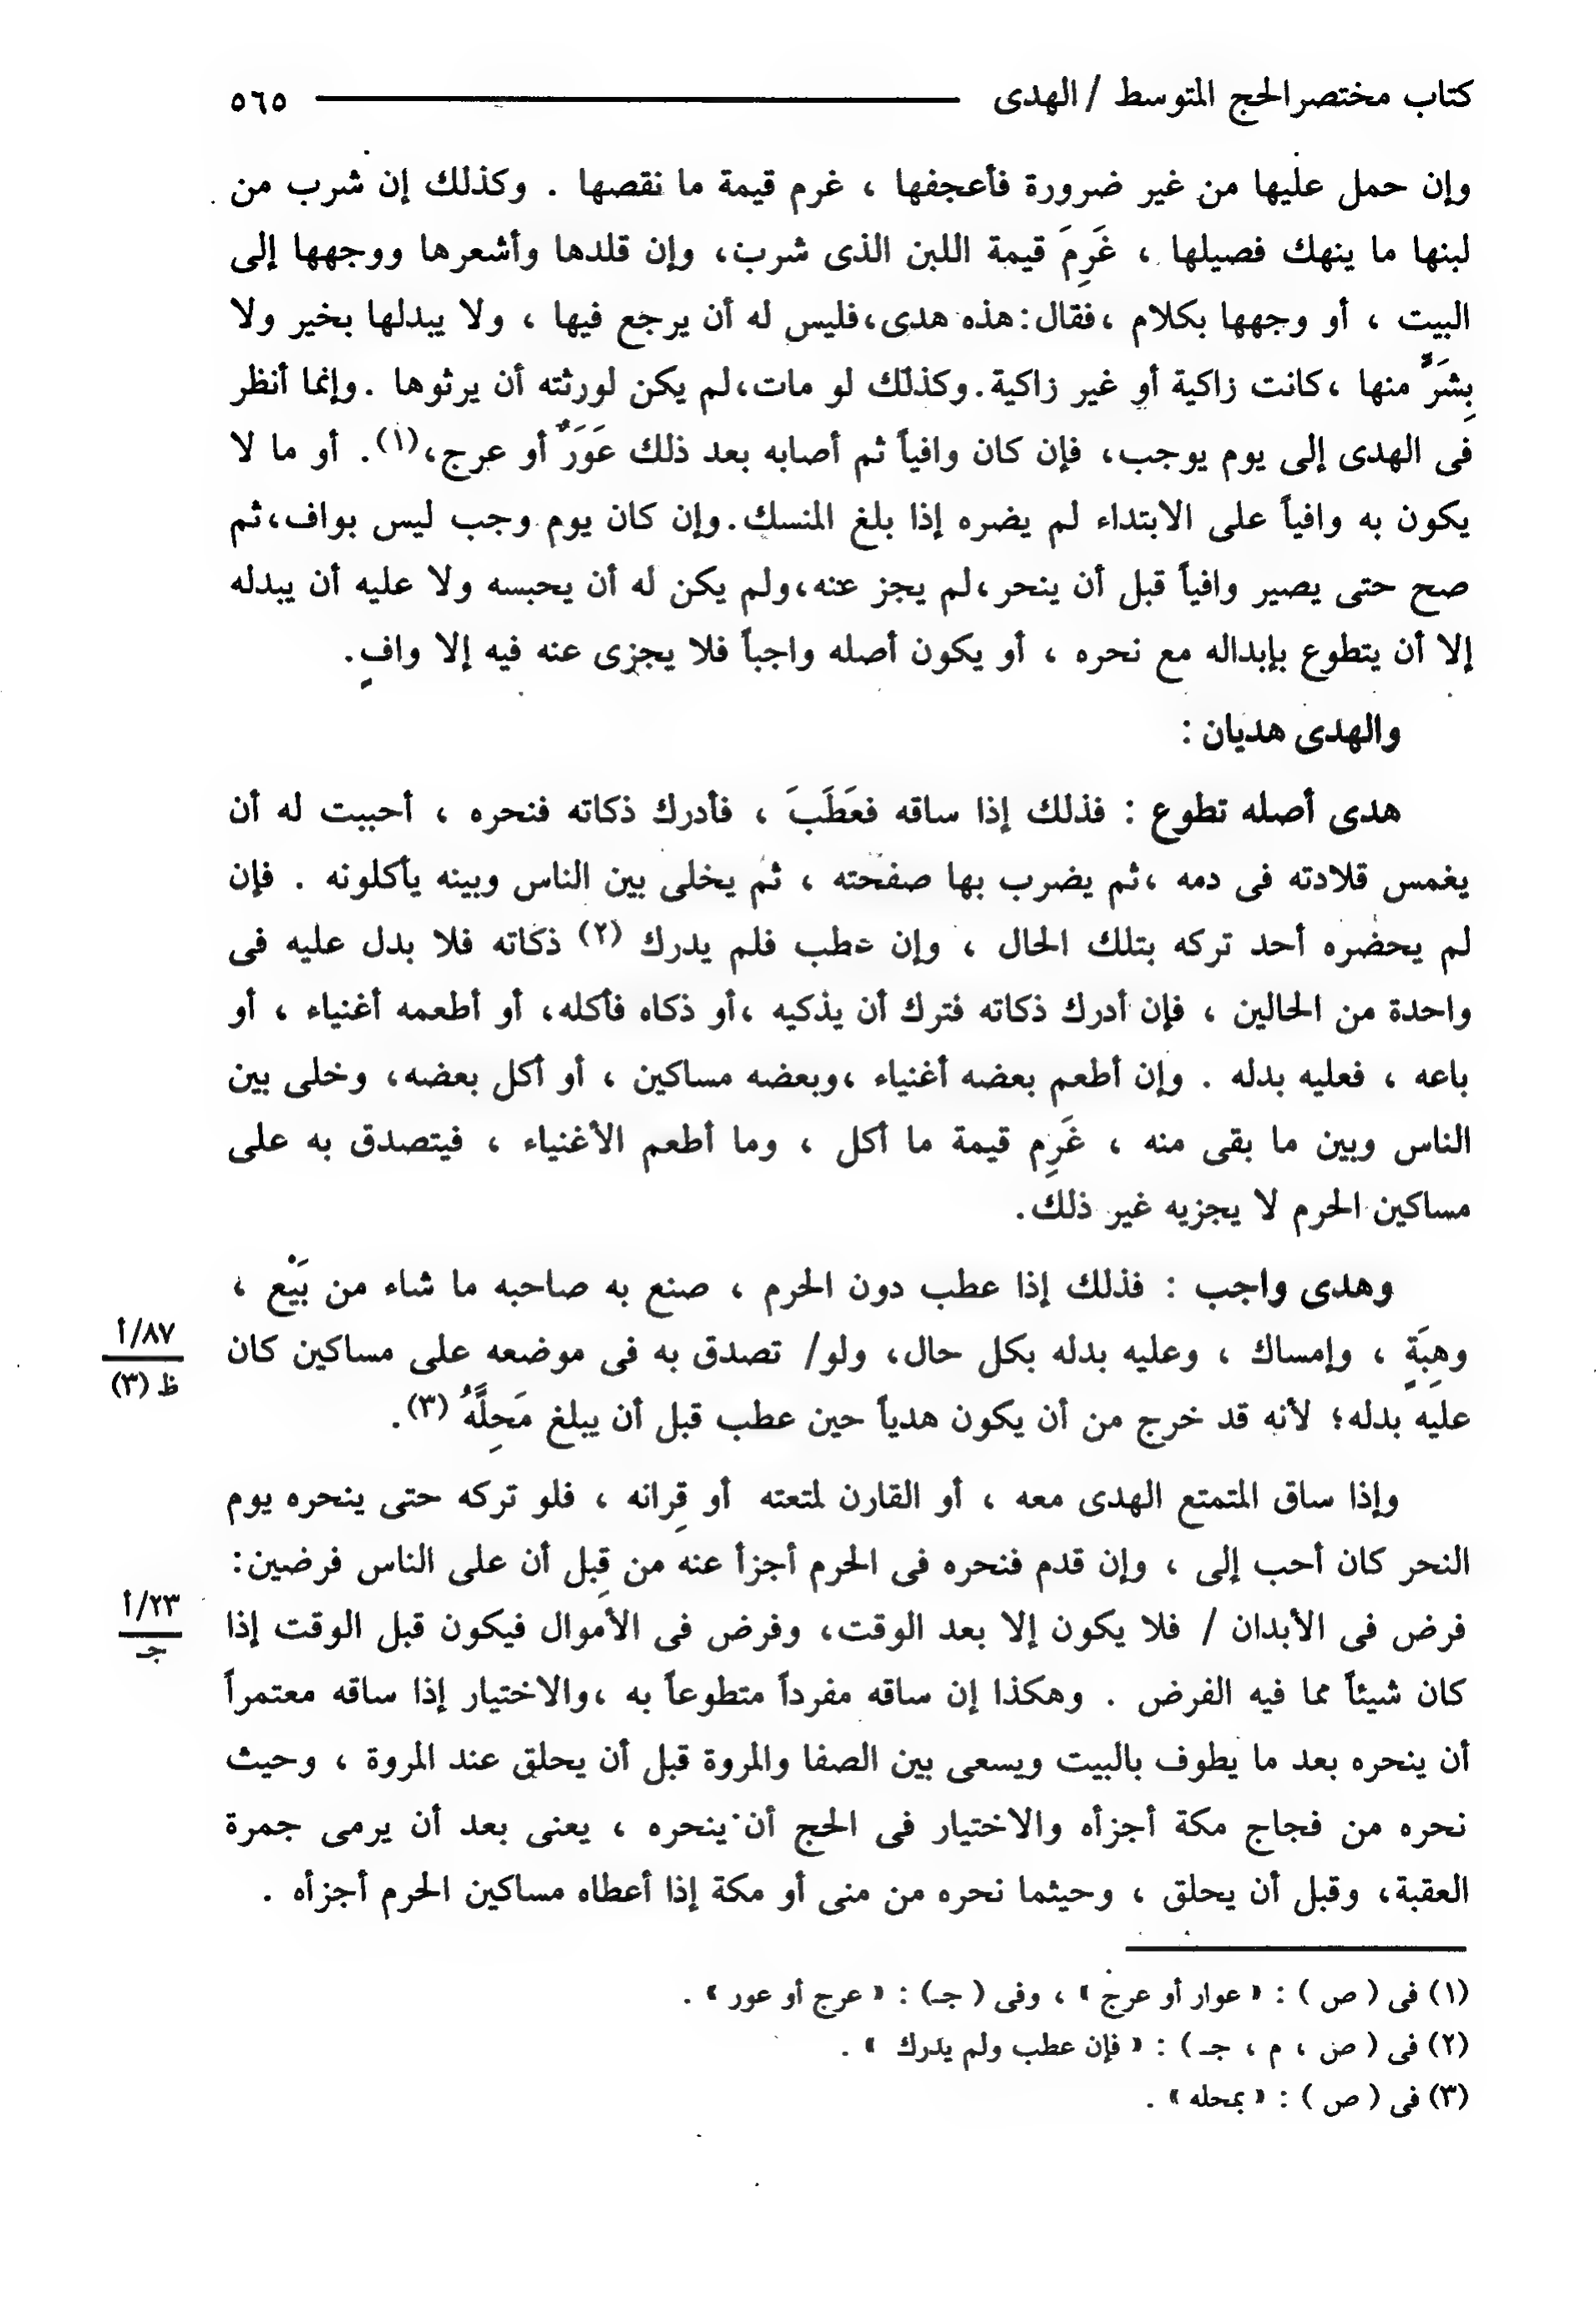 كتاب مختصر الحج المتوسط / الهدى ٥٦٥
وإن حمل عليها من غير ضرورة فأعجفها ، غرم قيمة ما نقصها . وكذلك إن شرب من
لبنها ما ينهك فصيلها ، غَرِمَ قيمة اللبن الذى شرب، وإن قلدها وأشعرها ووجهها إلى
البيت ، أو وجهها بكلام ،فقال:هذه هدى،فليس له أن يرجع فيها ، ولا يبدلها بخير ولا
بِشَرٍّ منها ،كانت زاكية أو غير زاكية.وكذلك لو مات،لم يكن لورثته أن يرثوها .وإنما أنظر
فى الهدى إلى يوم يوجب، فإن كان وافياً ثم أصابه بعد ذلك عَوَرٌ أو عرج،(١). أو ما لا
يكون به وافياً على الابتداء لم يضره إذا بلغ المنسك.وإن كان يوم وجب ليس بواف،ثم
صح حتى يصير وافياً قبل أن ينحر،لم يجز عنه،ولم يكن له أن يحبسه ولا عليه أن يبدله
إلا أن يتطوع بإبداله مع نحره ، أو يكون أصله واجباً فلا يجزى عنه فيه إلا وافٍ.
والهدى هديان :
هدى أصله تطوع : فذلك إذا ساقه فعَطَبَ ، فأدرك ذكاته فنحره ، أحببت له أن
يغمس قلادته فى دمه ،ثم يضرب بها صفحته ، ثم يخلى بين الناس وبينه يأكلونه . فإن
لم يحضره أحد تركه بتلك الحال ، وإن عطب فلم يدرك (٢) ذكاته فلا بدل عليه فى
واحدة من الحالين ، فإن أدرك ذكاته فترك أن يذكيه ،أو ذكاه فأكله، أو أطعمه أغنياء ، أو
باعه ، فعليه بدله . وإن أطعم بعضه أغنياء ،وبعضه مساكين ، أو أكل بعضه، وخلى بين
الناس وبين ما بقى منه ، غَرِم قيمة ما أكل ، وما أطعم الأغنياء ، فيتصدق به على
مساكين الحرم لا يجزيه غير ذلك.
وهدى واجب : فذلك إذا عطب دون الحرم ، صنع به صاحبه ما شاء من بَيْع ،
وهِبَةٍ ، وإمساك ، وعليه بدله بكل حال، ولو/ تصدق به فى موضعه على مساكين كان
٨٧/أ
ظ (٣)
عليه بدله؛ لأنه قد خرج من أن يكون هدياً حين عطب قبل أن يبلغ مَحِلَّهُ (٣).
وإذا ساق المتمتع الهدى معه ، أو القارن لمتعته أو قِرانه ، فلو تركه حتى ينحره يوم
النحر كان أحب إلى ، وإن قدم فنحره فى الحرم أجزأ عنه من قِبل أن على الناس فرضين:
فرض فى الأبدان / فلا يكون إلا بعد الوقت، وفرض فى الأموال فيكون قبل الوقت إذا
٢٣/أ
جـ
كان شيئاً مما فيه الفرض . وهكذا إن ساقه مفرداً متطوعاً به ،والاختيار إذا ساقه معتمراً
أن ينحره بعد ما يطوف بالبيت ويسعى بين الصفا والمروة قبل أن يحلق عند المروة ، وحيث
نحره من فجاج مكة أجزأه والاختيار فى الحج أن ينحره ، يعنى بعد أن يرمى جمرة
العقبة، وقبل أن يحلق ، وحيثما نحره من منى أو مكة إذا أعطاه مساكين الحرم أجزأه .
(١) فى ( ص ) : « عوار أو عرج » ، وفى ( جـ) : « عرج أو عور » .
(٢) فى ( ص ، م ، جـ ) : « فإن عطب ولم يدرك » .
(٣) فى ( ص ) : « بمحله » .